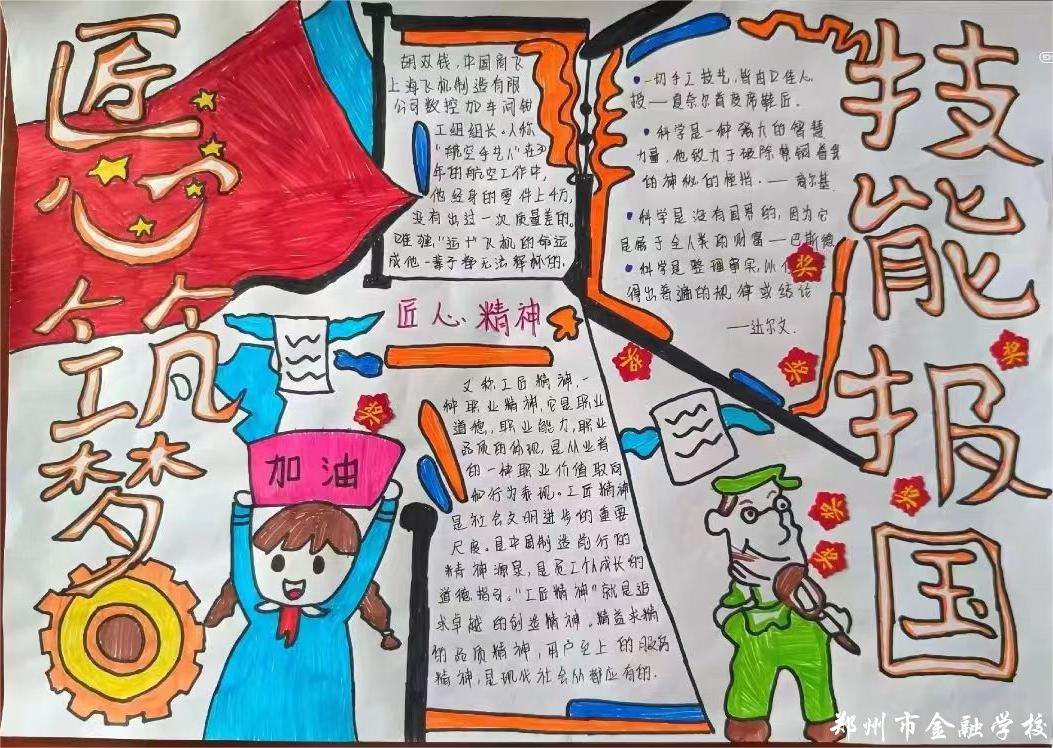 匠心筑梦
技能报国
胡双钱,中国商飞
上海飞机制造有限
公司数控加车间钳
工组组长。人称
"航空手艺人"在
年的航空工作中,
他经身的零件上4万,
没有出过一次质量差的。
飞机的命运
成他一辈子都无法释怀的.
一切手工技艺,皆由
授——夏奈尔首度席鞋匠.
科学是一种强大的智慧
力量,他致力于破除
的神秘的桎梏.——高尔基.
科学是没有国界的,因为它
是属于全人类的财富——巴斯德
科学是整理事实,从
得出普遍的规律或结论
——达尔文.
匠心精神
又称工匠精神,一
种职业精神,它是职业
道德,职业能力,职业
品质的体现,是从业者
的一种职业价值取向
和行为表现。工匠精神
是社会文明进步的重要
尺度。是中国制造前行的
精神源泉,是员工个人成长的
道德指引。"工匠精神"就是追
求卓越的创造精神.精益求精
的品质精神,用户至上的服务
精神,是现代社会从都应有的.
加油
奖
奖
奖
奖
奖
奖
奖
奖
郑州市金融学校